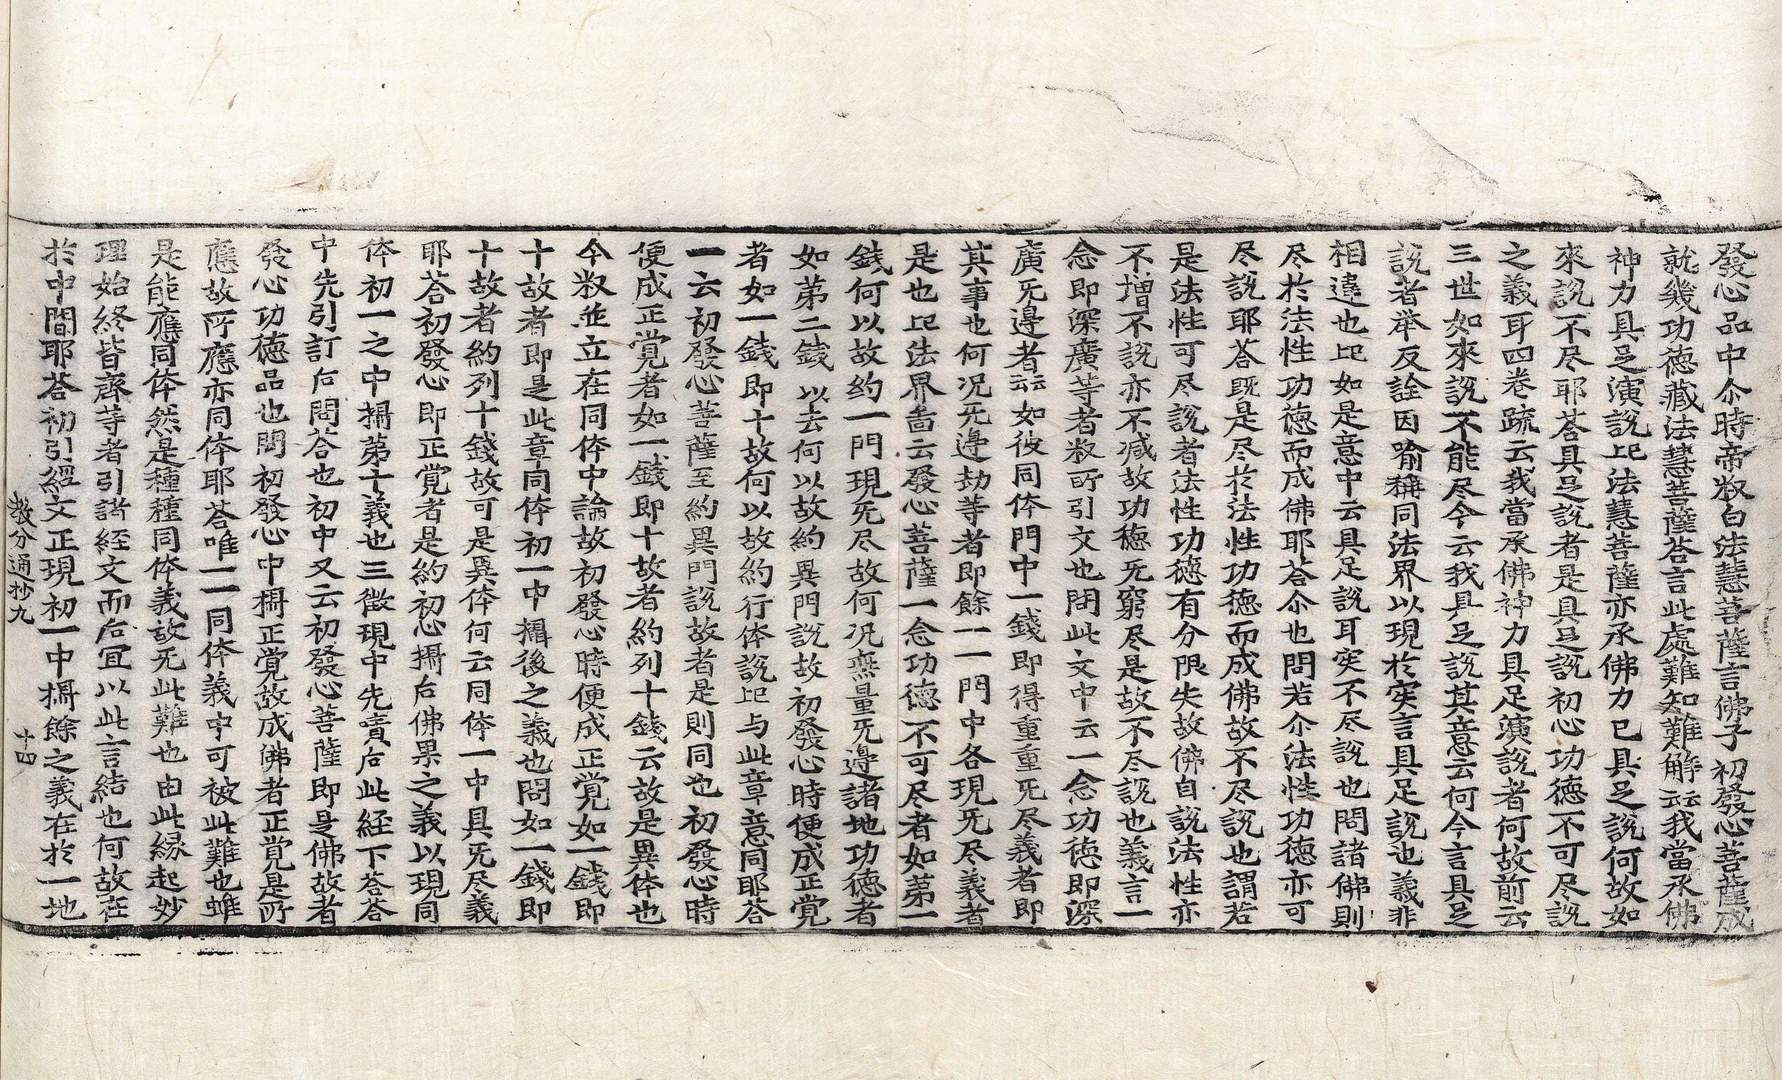 發心品中尒時帝釈白法慧菩薩言佛子初發心菩薩成
就幾功德藏法慧菩薩荅言此處難知難解云云我當承佛
神力具足演說此法慧菩薩亦承佛力已具足說何故如
來說不尽耶荅具足說者是具足說初心功德不可尽說
之義耳四卷疏云我當承佛神力具足演說者何故前云
三世如來說不能尽今云我具足說其意云何今言具足
說者举反詮因喻稱同法界以現於实言具足說也義非
相違也此如是意中云具足說耳实不尽說也問諸佛則
尽於法性功德而成佛耶荅尒也問若尒法性功德亦可
尽說耶荅旣是尽於法性功德而成佛故不尽說也謂若
是法性可尽說者法性功德有分限失故佛自說法性亦
不增不說亦不减故功德旡窮尽是故不尽說也義言一
念即深廣等者釈所引文也問此文中云一念功德即深
廣旡邊者云云如彼同体門中一錢即得重重旡尽義者即
其事也何况旡邊劫等者即餘一一門中各現旡尽義者
是也此法界啚云發心菩薩一念功德不可尽者如第一
錢何以故约一門現旡尽故何况無量旡邊諸地功德者
如第二錢以去何以故約異門說故初發心時便成正覺
者如一錢即十故何以故約行体說此与此章意同耶荅
一云初發心菩薩至約異門說故者是則同也初發心時
便成正覺者如一錢即十故者約列十錢云故是異体也
今釈並立在同体中論故初發心時便成正覺如一錢即
十故者即是此章同体初一中攝後之義也問如一錢即
十故者約列十錢故可是異体何云同体一中具旡尽義
耶荅初發心即正覺者是約初心攝后佛果之義以現同
体初一之中攝第十義也三徵現中先責后此経下荅荅
中先引訂后問荅也初中又云初發心菩薩即是佛故者
發心功德品也問初發心中攝正覺故成佛者正覺是所
應故所應亦同体耶荅唯一一同体義中可被此難也雖
是能應同体然是種種同体義故旡此難也由此縁起妙
理始終皆齊等者引諸経文而后冝以此言結也何故在
於中間耶荅初引經文正現初一中攝餘之義在於一地
教分通抄九 十四